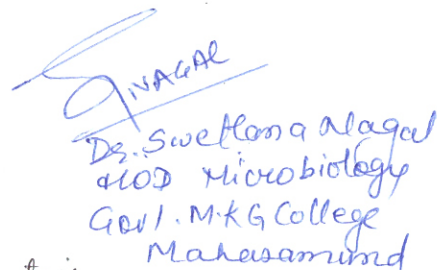 SNAGAL
Dr. Swetlana Nagal
HOD Microbiology
Govt. M.K G College
Mahasamund